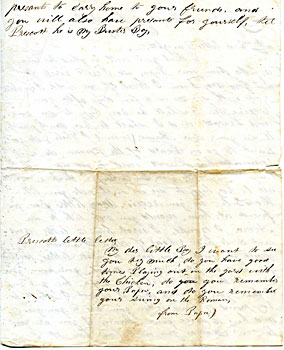 presants to carry home to your friends, and
you will also have presants for yourself, tell
Prescott he is My Boy
Prescotts little letter
My der little Boy I want to see
you very much, do you have good
times Playing out in the yard with
the Chicken, do you you remember
your Papa, and do you remember
your Swing on the
from Papa)